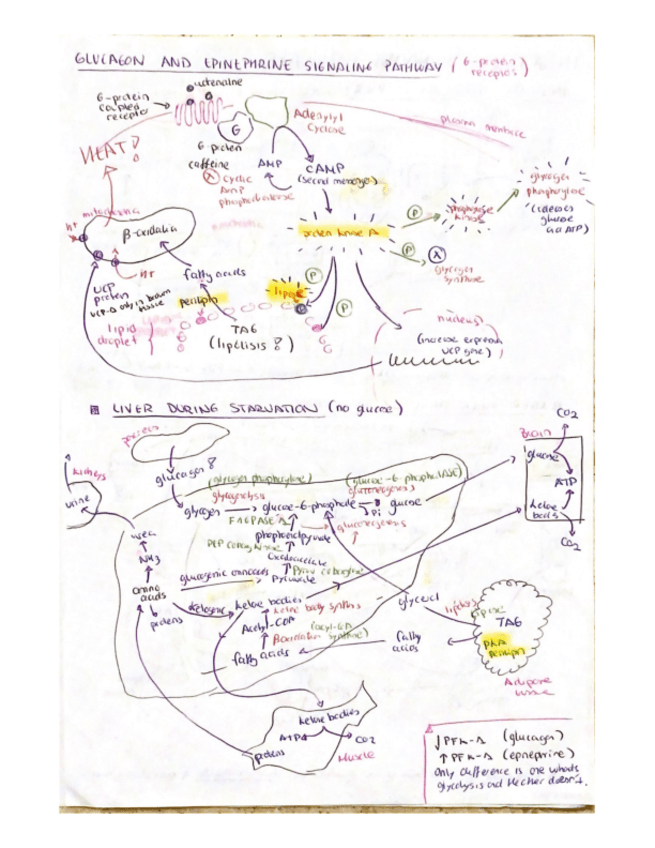 GLUCAGON AND EPINEPHRINE SIGNALING PATHWAY (G-protein receptors)
adrenaline
G-protein
coupled
receptor
Adenylyl
cyclase
G
G-protein
plasma membrane
HEAT
caffeine
cyclic
AMP
phosphodiesterase
AMP
cAMP
(second messenger)
glycogen
phosphorylase
(releases
glucose
via ATP)
P
phosphorylase
kinase
protein kinase A
P
glycogen
synthase
mitochondria
H+
β-oxidatia
H+
UCP
protein
UCP-1 only in brown
tissue
fatty acids
perilipin
lipase
P
P
lipid
droplet
TAG
(lipólisis !)
nucleus
(increase expression
UCP gene)
LIVER DURING STARVATION (no glucose)
CO2
pancreas
Brain
glucose
ATP
ketone
bodies
CO2
kidneys
urine
glucagon
(glycogen phosphorylase)
(glucose-6-phosphatase)
glycogenolysis
gluconeogenesis
glycogen
glucose-6-phosphate
Pi
glucose
F16BPASE
gluconeogenesis
phosphoenolpyruvate
PEP carboxykinase
Oxaloacetate
Pyruv carboxylase
urea
NH3
glucogenic aminoacids
Pyruvate
amino
acids
ketogenic
ketone bodies
ketone body synthesis
proteins
Acetyl-CoA
fatty acids
glycerol
fatty
acids
lipolysis
lipase
TAG
PKA
perilipin
Adipose
tissue
ketone bodies
ATP
CO2
proteins
Muscle
↓PFK-1 (glucagon)
↑PFK-1 (epinephrine)
Only difference is one inhibits
glycolysis and the other doesn't.